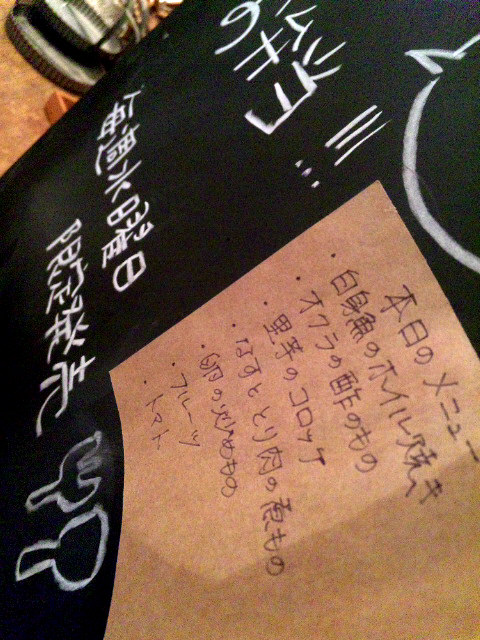 毎週水曜日
限定発売
本日のメニュー
・白身魚のホイル焼き
・オクラの酢のもの
・里芋のコロッケ
・なすととり肉の煮もの
・卵の炒めもの
・フルーツ
・トマト